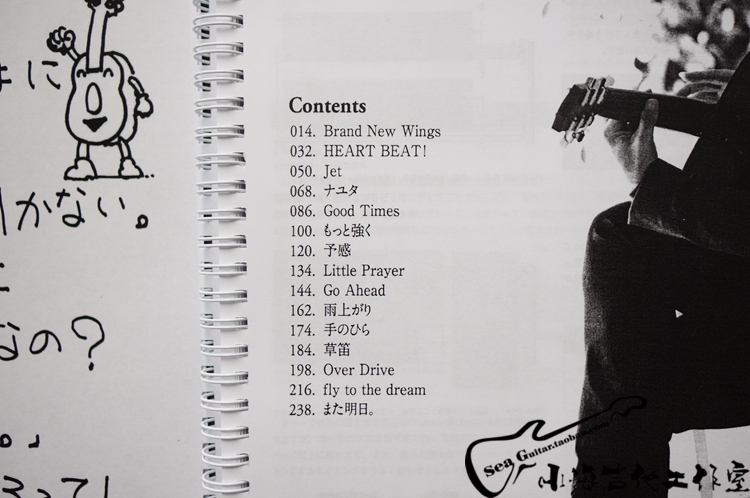 に
かない。
なの?
。」
って!
Contents
014. Brand New Wings
032. HEART BEAT!
050. Jet
068. ナユタ
086. Good Times
100. もっと強く
120. 予感
134. Little Prayer
144. Go Ahead
162. 雨上がり
174. 手のひら
184. 草笛
198. Over Drive
216. fly to the dream
238. また明日。
Sea Guitar.taobao.com